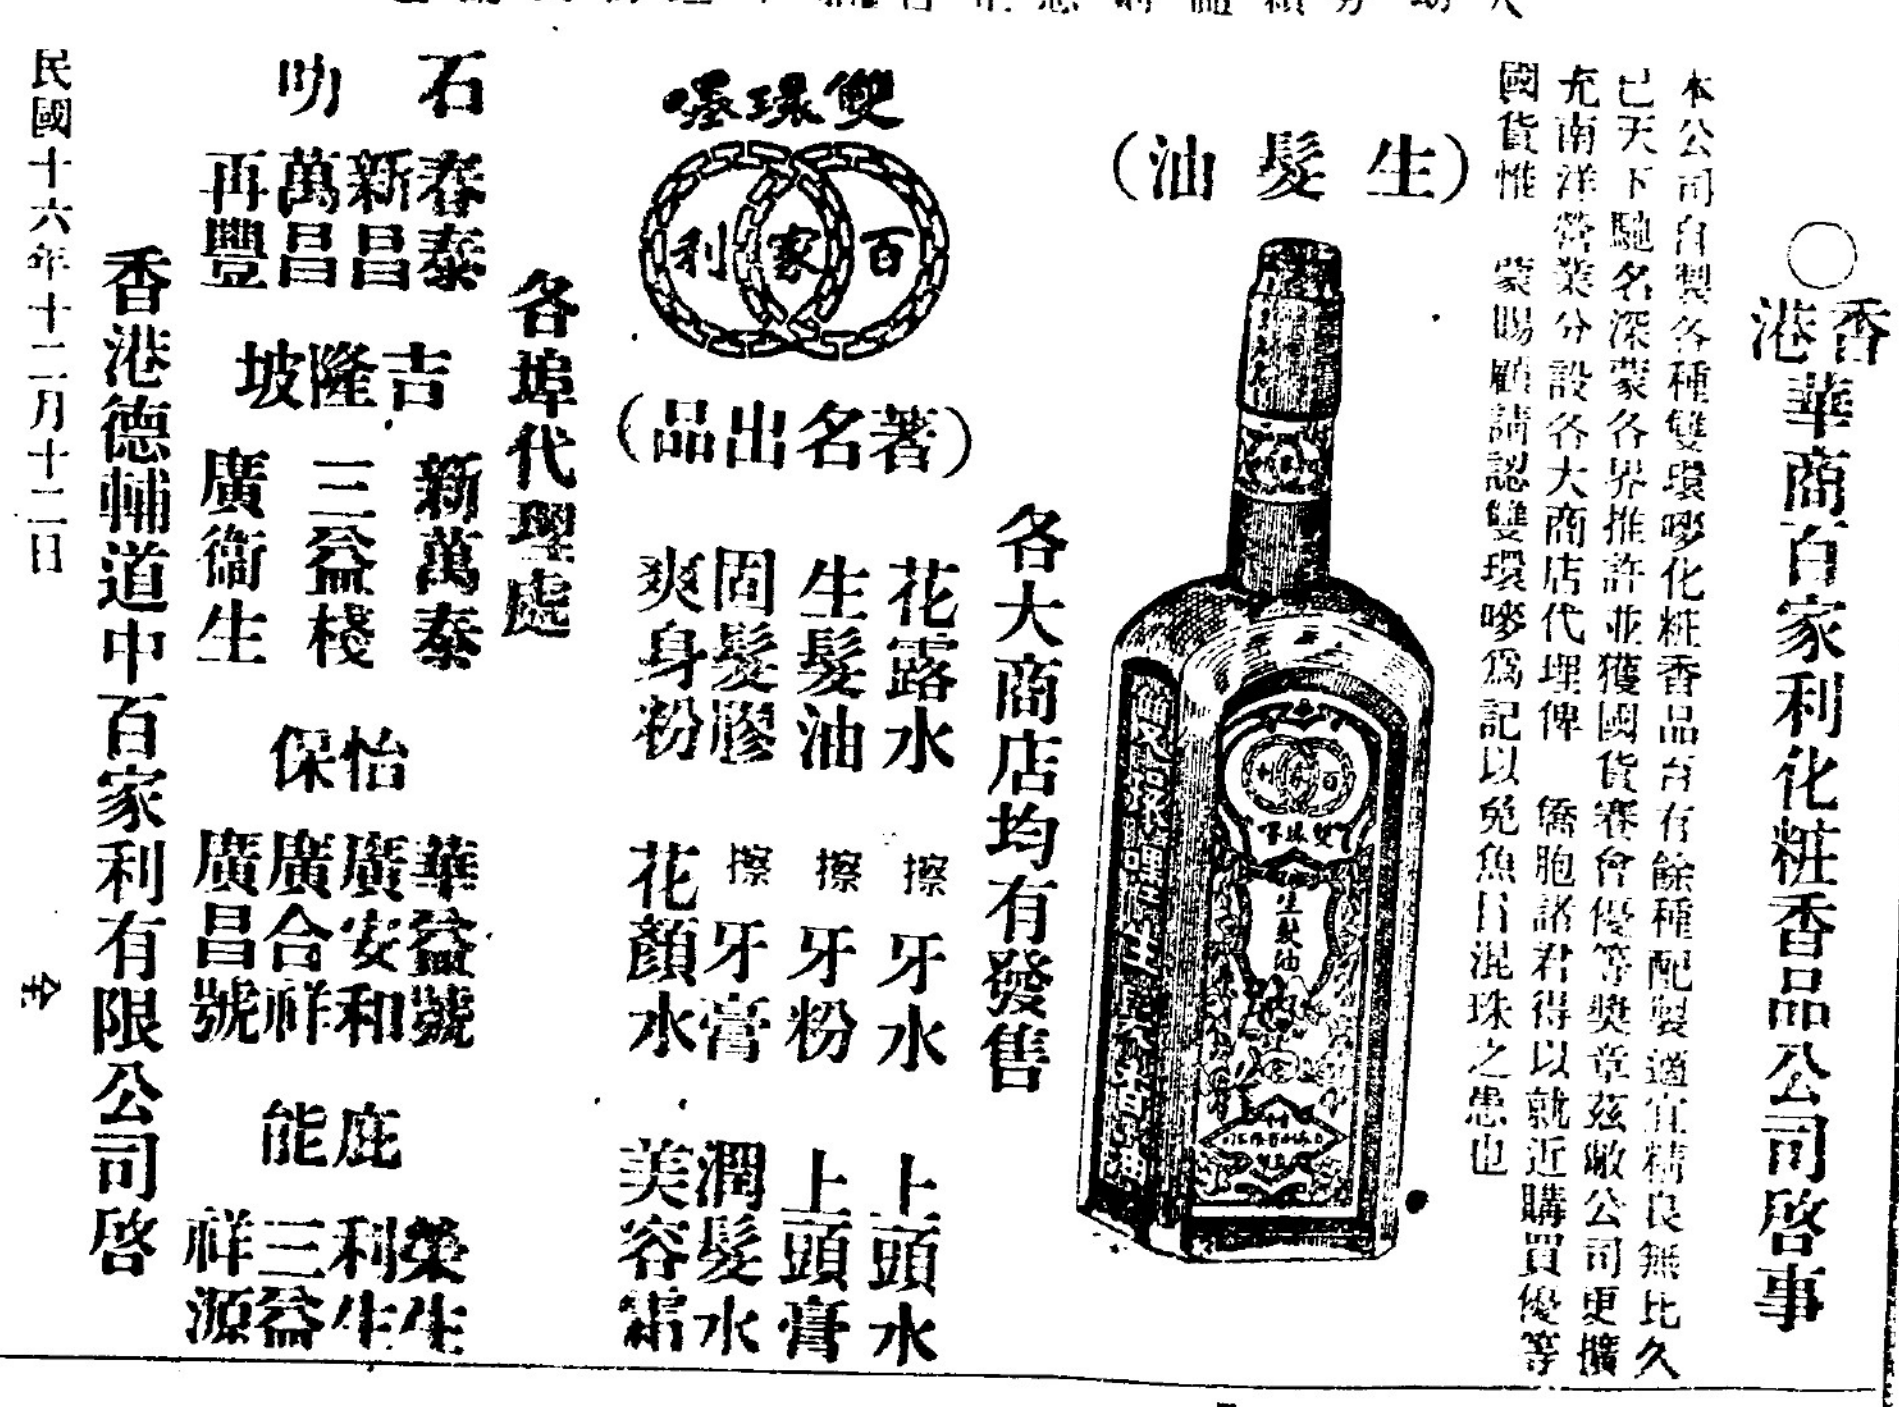 香港華商百家利化粧香品公司啓事
本公司自製各種雙環嘜化粧香品百有餘種配製適宜精良無比久
已天下馳名深蒙各界推許並獲國貨賽會優等獎章茲敝公司更擴
充南洋營業分設各大商店代理俾 僑胞諸君得以就近購買優等
國貨惟 蒙賜顧請認雙環嘜爲記以免魚目混珠之患也
(生髮油)
百家利
雙環嘜
生髮油
各大商店均有發售
雙環嘜
百家利
(著名出品)
花露水 擦牙水 上頭水
生髮油 擦牙粉 上頭膏
固髮膠 擦牙膏 潤髮水
爽身粉 花顏水 美容霜
各埠代理處
石叻
春泰
新昌
萬昌
再豐
吉隆坡
新萬泰
三益棧
廣衞生
怡保
華益號
廣安和
廣合祥
廣昌號
庇能
榮生
利生
三益
祥源
香港德輔道中百家利有限公司啓
民國十六年十二月十二日